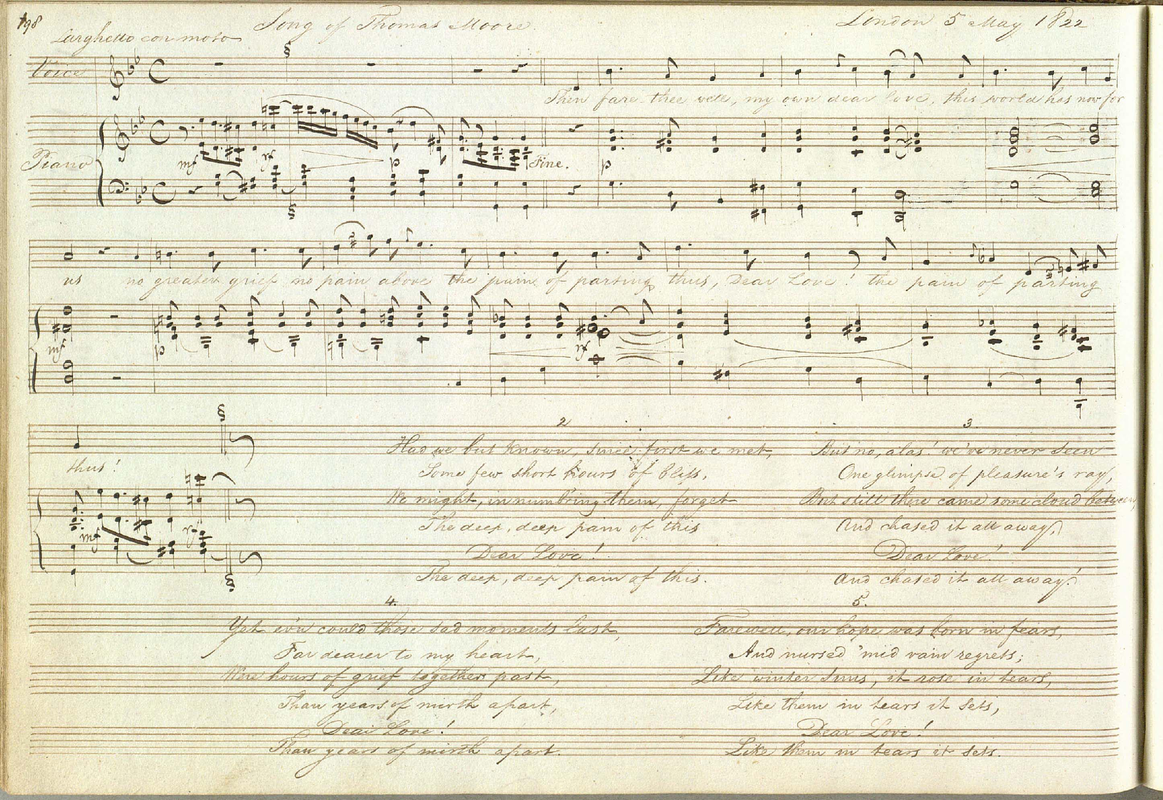 198
Song of Thomas Moore
London 5 May 1822
Larghetto con moto
Voice
Then fare thee well, my own dear love, this world has now for
Piano
mf
p
Fine.
p
us no greater grief no pain above the pain of parting thus, Dear Love! the pain of parting
mf
p
thus!
mf
2
Had we but known, since first we met,
Some few short hours of bliss,
We might, in numb'ring them, forget
The deep, deep pain of this
Dear Love!
The deep, deep pain of this.
3
But no, alas! we've never seen
One glimpse of pleasure's ray,
But still there came some cloud between,
And chased it all away,
Dear Love!
And chased it all away!
4.
Yet, ev'n could those sad moments last,
Far dearer to my heart,
Were hours of grief together past,
Than years of mirth apart,
Dear Love!
Than years of mirth apart.
5.
Farewell, our hope was born in fears,
And nursed 'mid vain regrets;
Like winter suns, it rose in tears,
Like them in tears it sets,
Dear Love!
Like them in tears it sets.